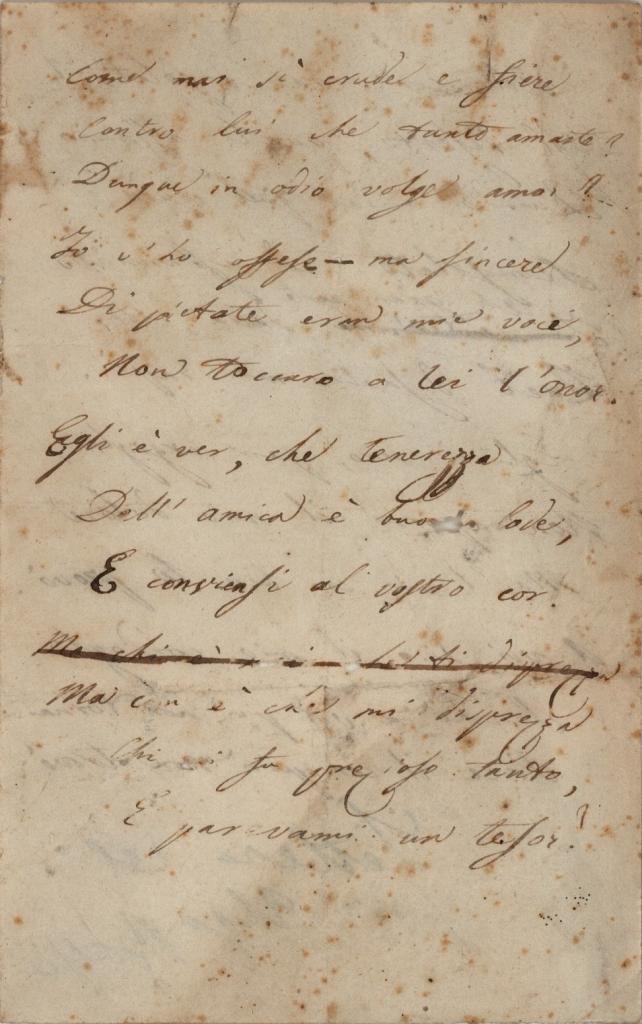 Come mai sì crude e fiere
Contro lui che tanto amaste?
Dunque in odio volge amor?
Io v'ho offese — ma sincere
Di pietate eran mie voci,
Non toccaro a lei l'onor.
Egli è ver, che tenerezza
Dell' amica è buona lode,
E conviensi al vostro cor.
Ma chi è ti disprezza
Ma con è che mi disprezza
Chi mi fu prezioso tanto,
E paravami un tesor?